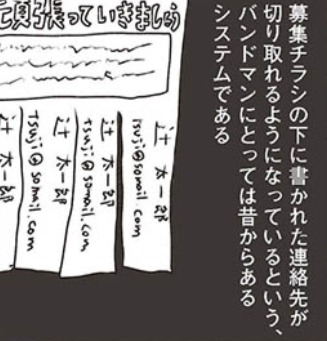 募集チラシの下に書かれた連絡先が
切り取れるようになっているという、
バンドマンにとっては昔からある
システムである
張っていきましょう
辻 太一郎
tsuji@somail.com
辻 太一郎
tsuji@somail.com
辻 太一郎
tsuji@somail.com
辻 太